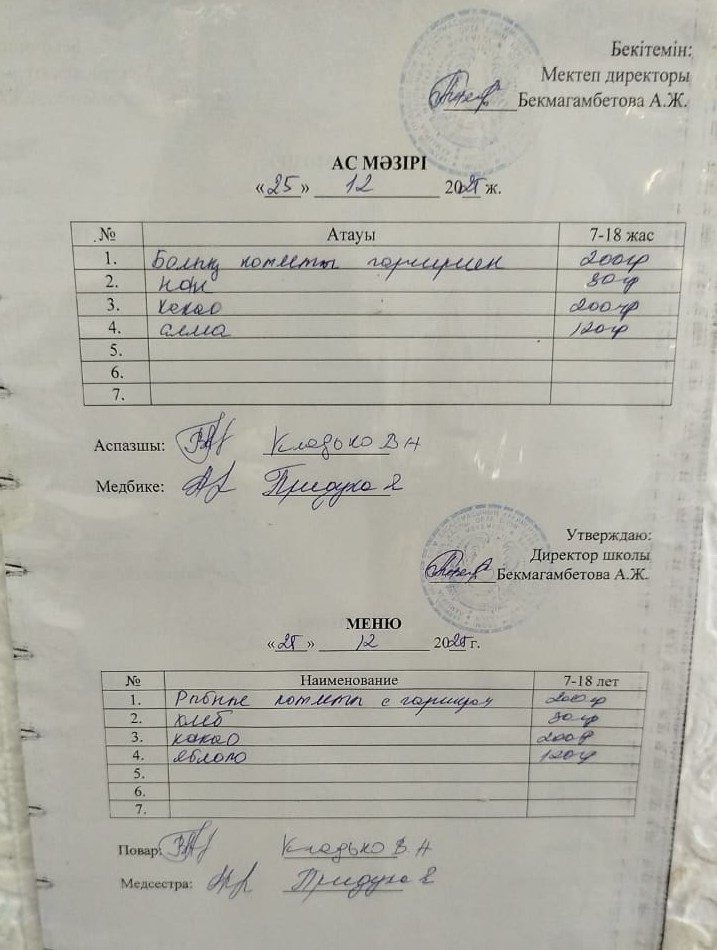 Бекітемін:
Мектеп директоры
Бекмагамбетова А.Ж.
АС МӘЗІРІ
«25» 12 2025 ж.
№ Атауы 7-18 жас
1. Балық котлеты гарнирмен 200гр
2. нан 30гр
3. какао 200гр
4. алма 120гр
5.
6.
7.
Аспазшы: Кладько В Н
Медбике: Придуха Я
Утверждаю:
Директор школы
Бекмагамбетова А.Ж.
МЕНЮ
«25» 12 2025 г.
№ Наименование 7-18 лет
1. Рыбные котлеты с гарниром 200гр
2. хлеб 30гр
3. какао 200гр
4. яблоко 120гр
5.
6.
7.
Повар: Кладько В.Н
Медсестра: Придуха Я